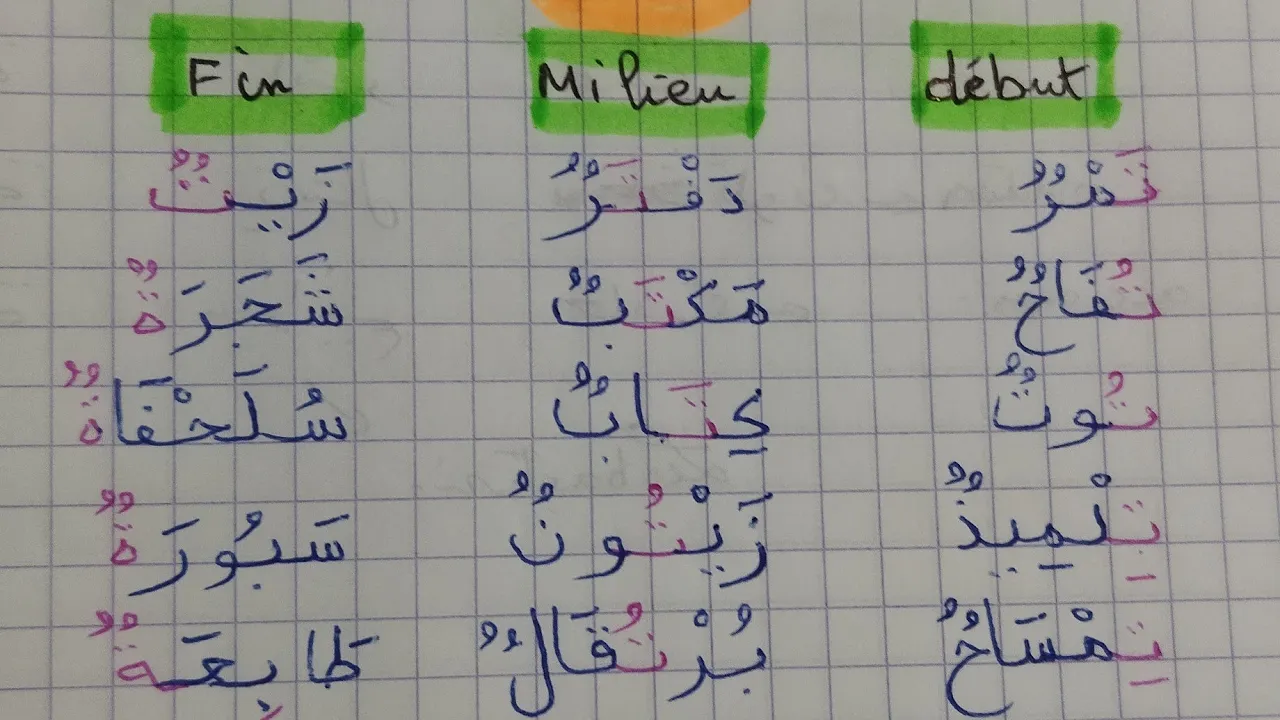 Fin Milieu début
تَمْرٌ دَفْتَرٌ زَيْتٌ
تُفَاحٌ مَكْتَبٌ شَجَرَةٌ
تُوتٌ كِتَابٌ سُلَحْفَاةٌ
تِلْمِيذٌ زَيْتُونٌ سَبُورَةٌ
تِمْسَاحٌ بُرْتُقَالٌ طَابِعَةٌ